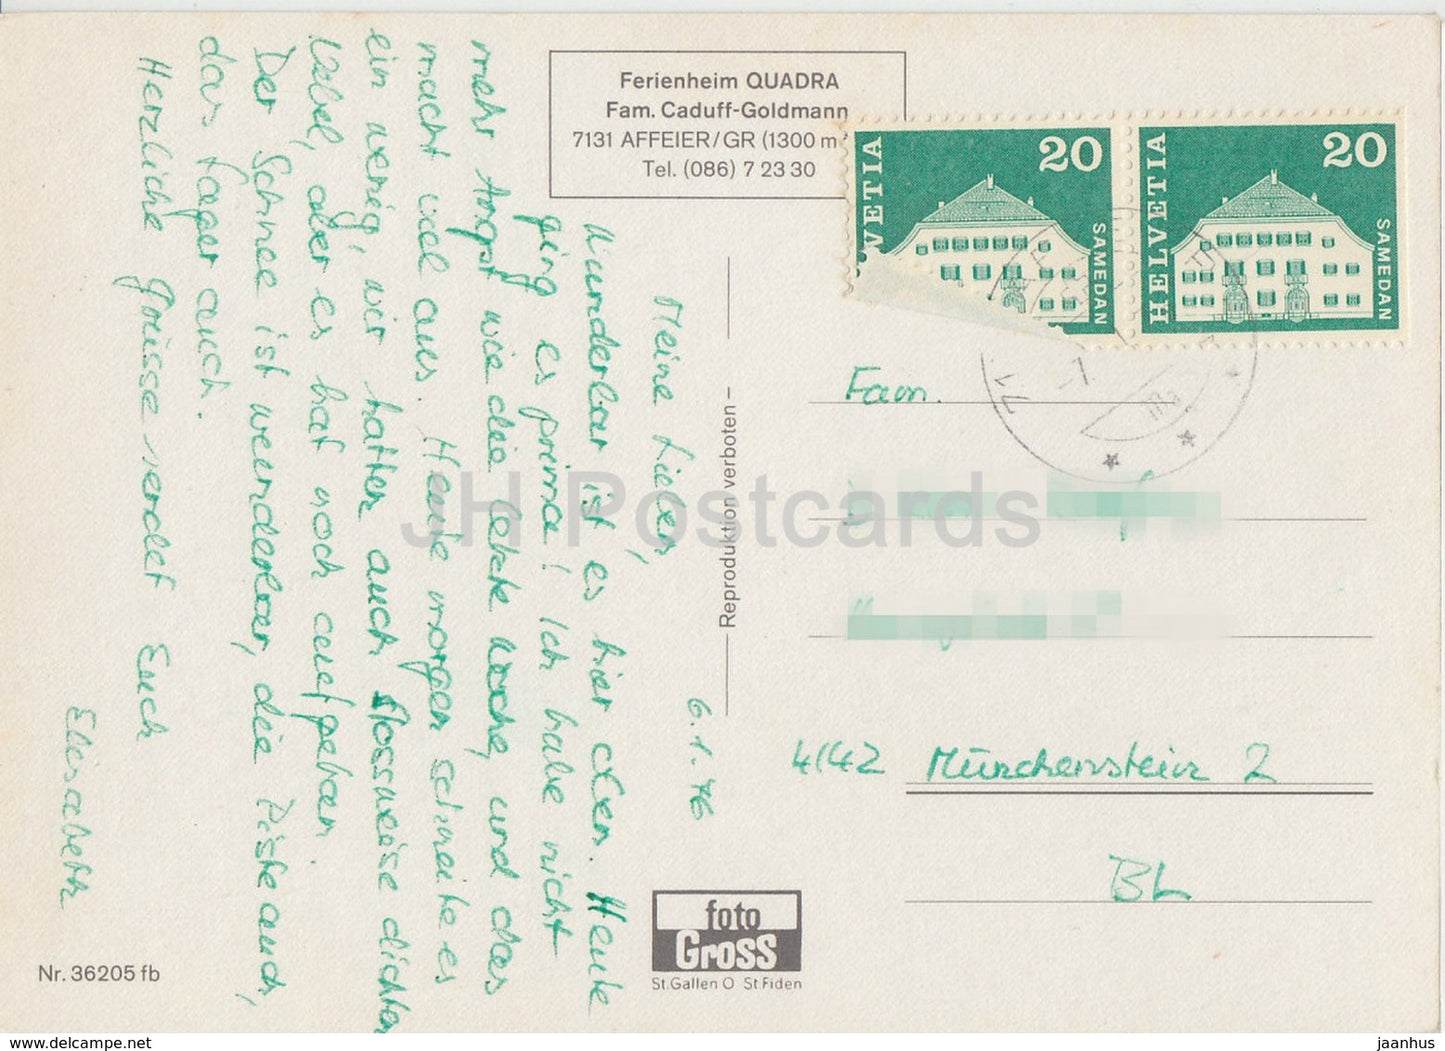 Ferienheim QUADRA
Fam. Caduff-Goldmann
7131 AFFEIER/GR (1300 m
Tel. (086) 7 23 30
HELVETIA
20
SAMEDAN
HELVETIA
20
SAMEDAN
6.1.76
Meine Lieben,
Wunderbar ist es hier oben. Heute
ging es prima! Ich habe nicht
mehr Angst wie die letzte Woche, und das
macht viel aus. Heute morgen schneite es
ein wenig, wir hatten auch stossweise dichten
Nebel, aber es hat noch aufgetan.
Der Schnee ist wunderbar, die Piste auch,
das Lager auch.
Herzliche Grüsse sendet Euch
Elisabeth
Reproduktion verboten
Fam.
4142 Münchenstein 2
BL
foto
Gross
St.Gallen O St.Fiden
Nr. 36205 fb
JH Postcards
www.delcampe.net
jaanhus